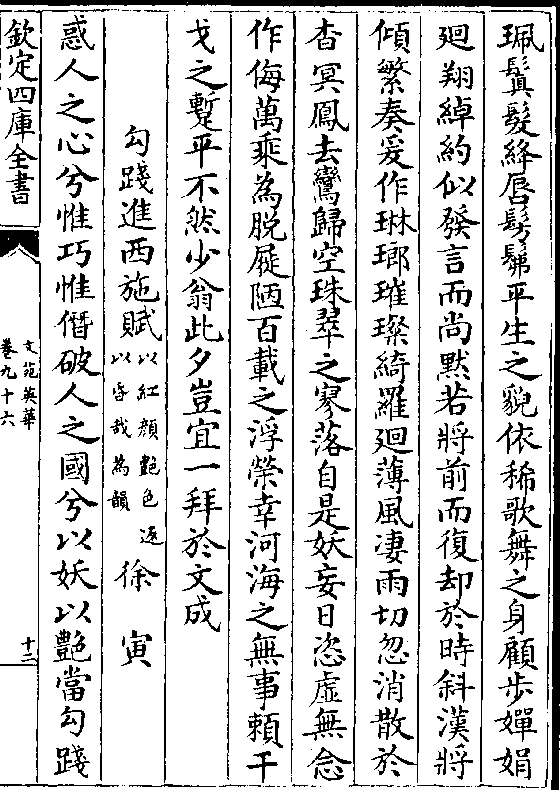 珮鬒髮絳唇髣髴平生之貌依稀歌舞之身顧步嬋娟
廻翔綽約似發言而尚黙若將前而復却於時斜漢將
傾繁奏爰作琳瑯璀璨綺羅廻薄風凄雨切忽消散於
杳冥鳳去鸞歸空珠翠之寥落自是妖妄日恣虛無念
作侮萬乘為脱屣陋百載之浮榮幸河海之無事賴干
戈之蹔平不然少翁此夕豈宜一拜於文成
勾踐進西施賦以紅顔艶色返以昏哉為韻 徐寅
惑人之心兮惟巧惟僭破人之國兮以妖以艷當勾踐
欽定四庫全書
文苑英華
卷九十六
十二